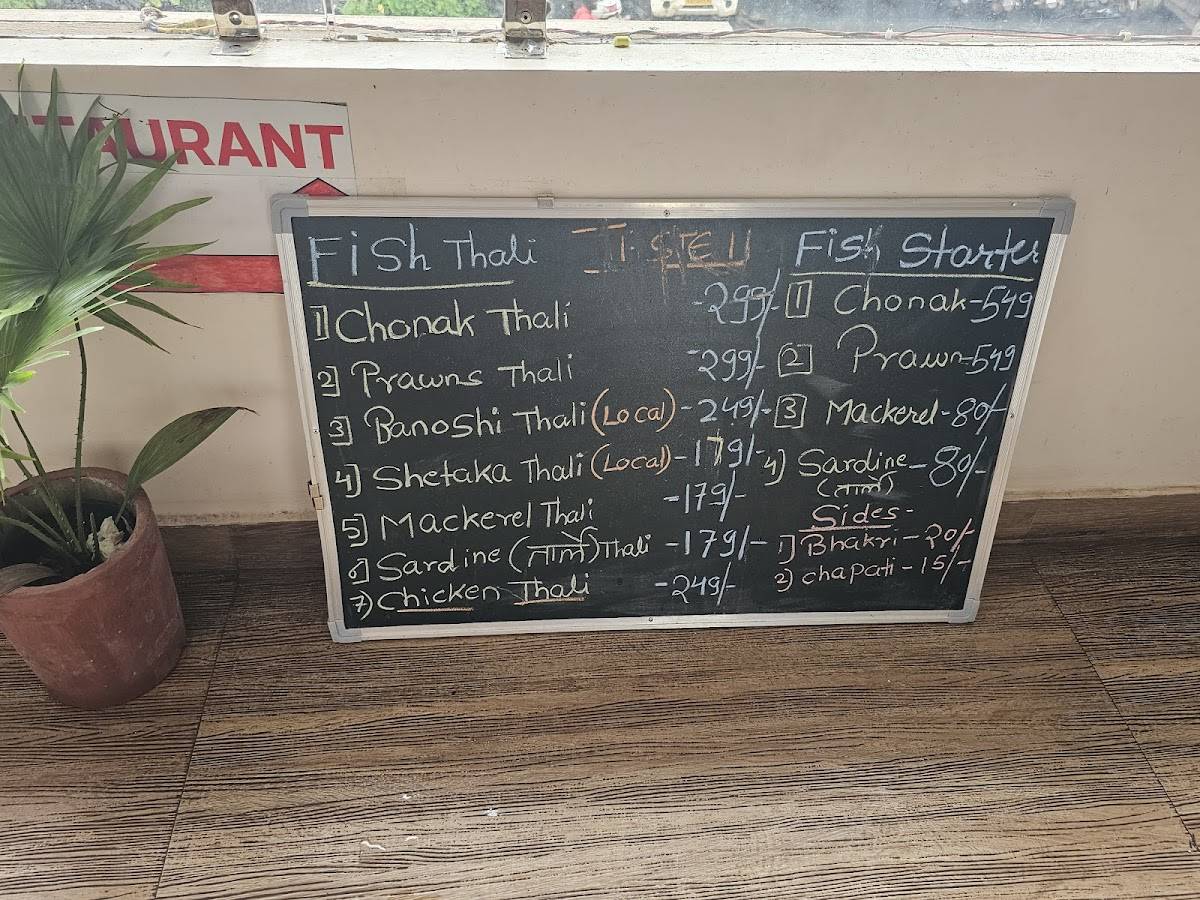 TAURANT
Fish Thali
1] Chonak Thali -299/-
2] Prawns Thali -299/-
3] Banoshi Thali (Local) -249/-
4] Shetaka Thali (Local) -179/-
5] Mackerel Thali -179/-
6] Sardine (तार्ले) Thali -179/-
7) Chicken Thali -249/-
Fish Starter
1 Chonak-549
2 Prawn-549
3 Mackerel-80/-
4) Sardine-80/-
(तार्ले)
Sides-
1) Bhakri-20/-
2) chapati-15/-